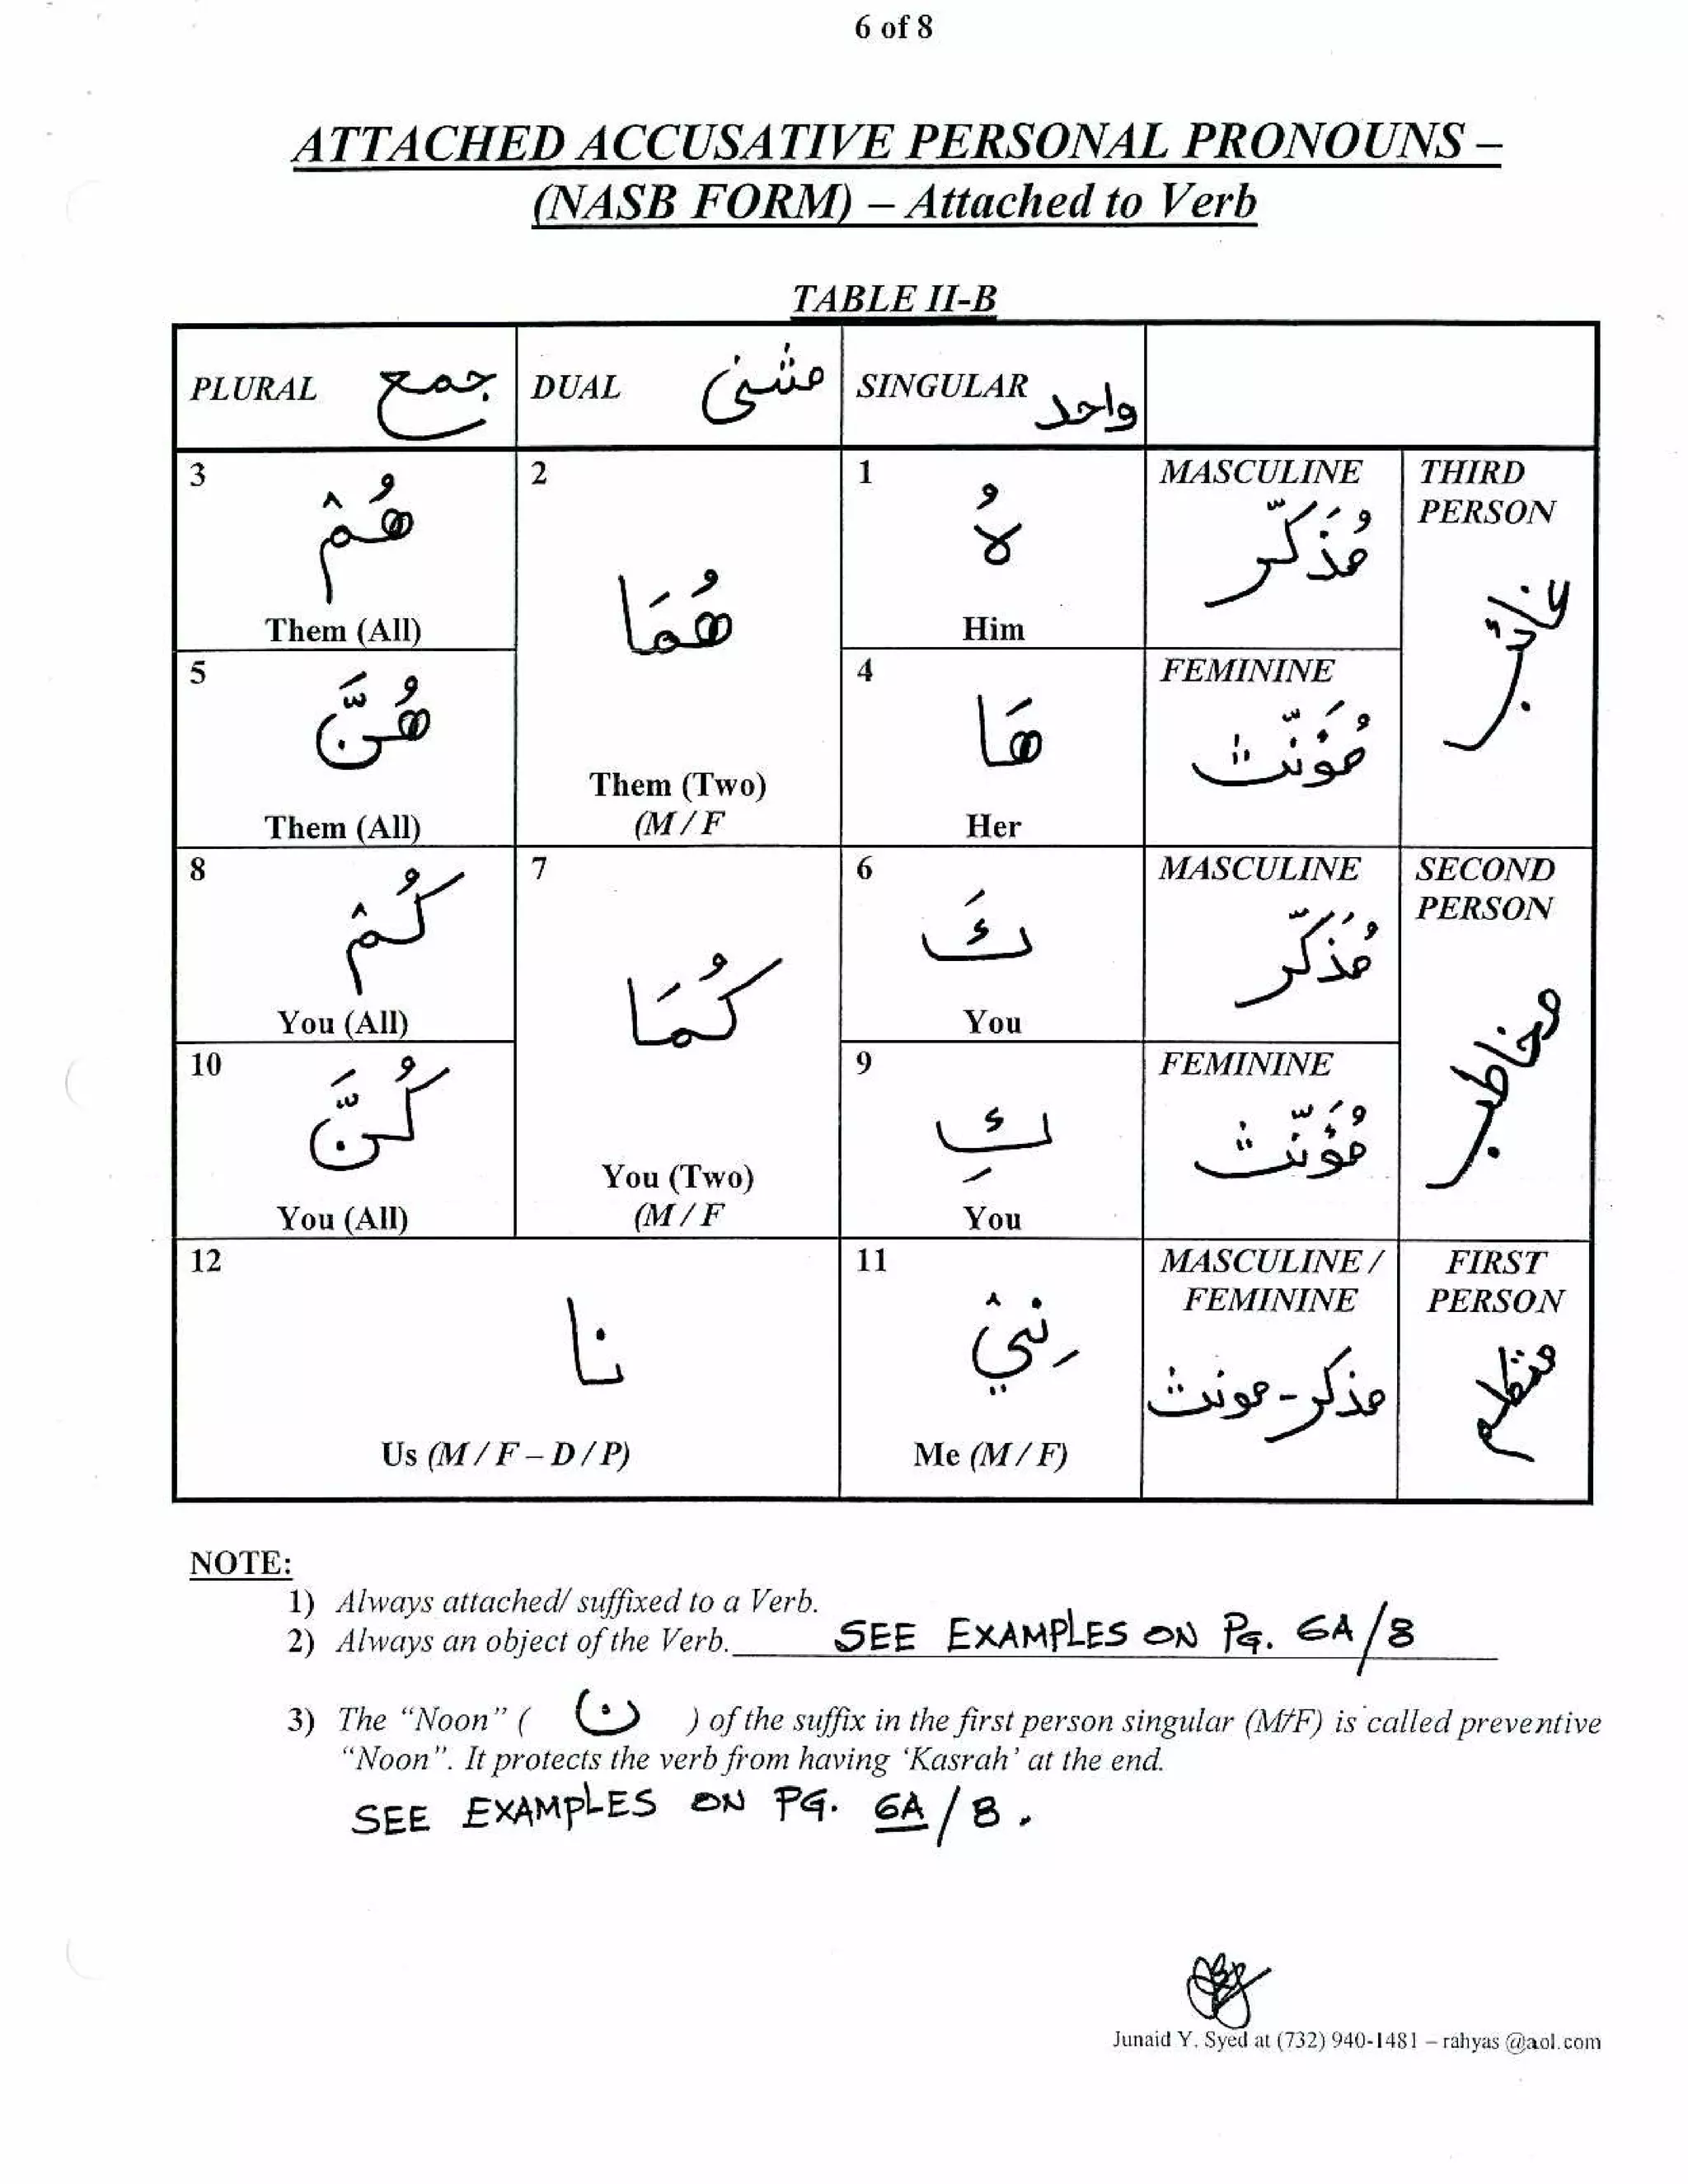 6 of 8
ATTACHED ACCUSATIVE PERSONAL PRONOUNS –
(NASB FORM) – Attached to Verb
TABLE II-B
PLURAL جمع DUAL مثنى SINGULAR واحد
3 2 1 MASCULINE THIRD
هُمْ هُمَا هُ مُذَكَّر PERSON
Them (All) Him غائب
5 4 FEMININE
هُنَّ هَا مُؤَنَّث
Them (Two)
Them (All) (M / F Her
8 7 6 MASCULINE SECOND
كُمْ كُمَا كَ مُذَكَّر PERSON
You (All) You مخاطب
10 9 FEMININE
كُنَّ كِ مُؤَنَّث
You (Two)
You (All) (M / F You
12 11 MASCULINE / FIRST
FEMININE PERSON
نا ـِنيْ مذكر - مونث متكلم
Us (M / F – D / P) Me (M / F)
NOTE:
1) Always attached/ suffixed to a Verb.
2) Always an object of the Verb. SEE EXAMPLES ON PG. 6A/8
3) The “Noon” ( ن ) of the suffix in the first person singular (M/F) is called preventive
“Noon”. It protects the verb from having ‘Kasrah’ at the end.
SEE EXAMPLES ON PG. 6A/8.
Junaid Y. Syed at (732) 940-1481 – rahyas @aol.com